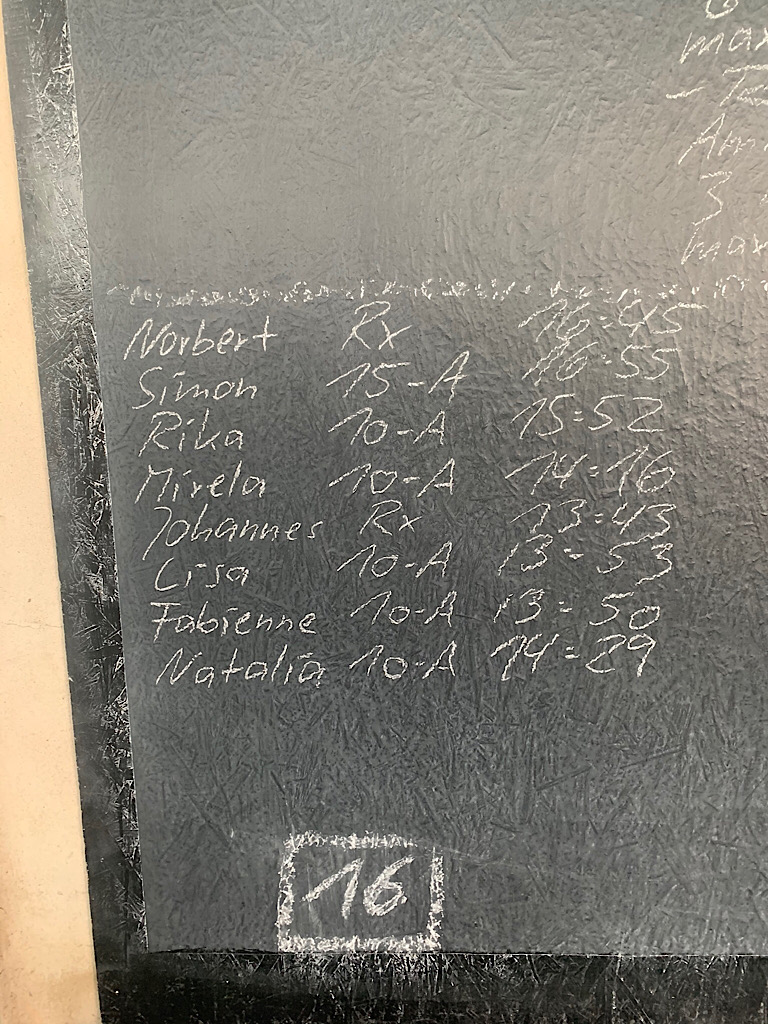 max
3
max
Norbert Rx 16:45
Simon 15-A 16:55
Rika 10-A 15:52
Mirela 10-A 14:16
Johannes Rx 13:43
Lisa 10-A 13:53
Fabienne 10-A 13:50
Natalia 10-A 14:29
16.